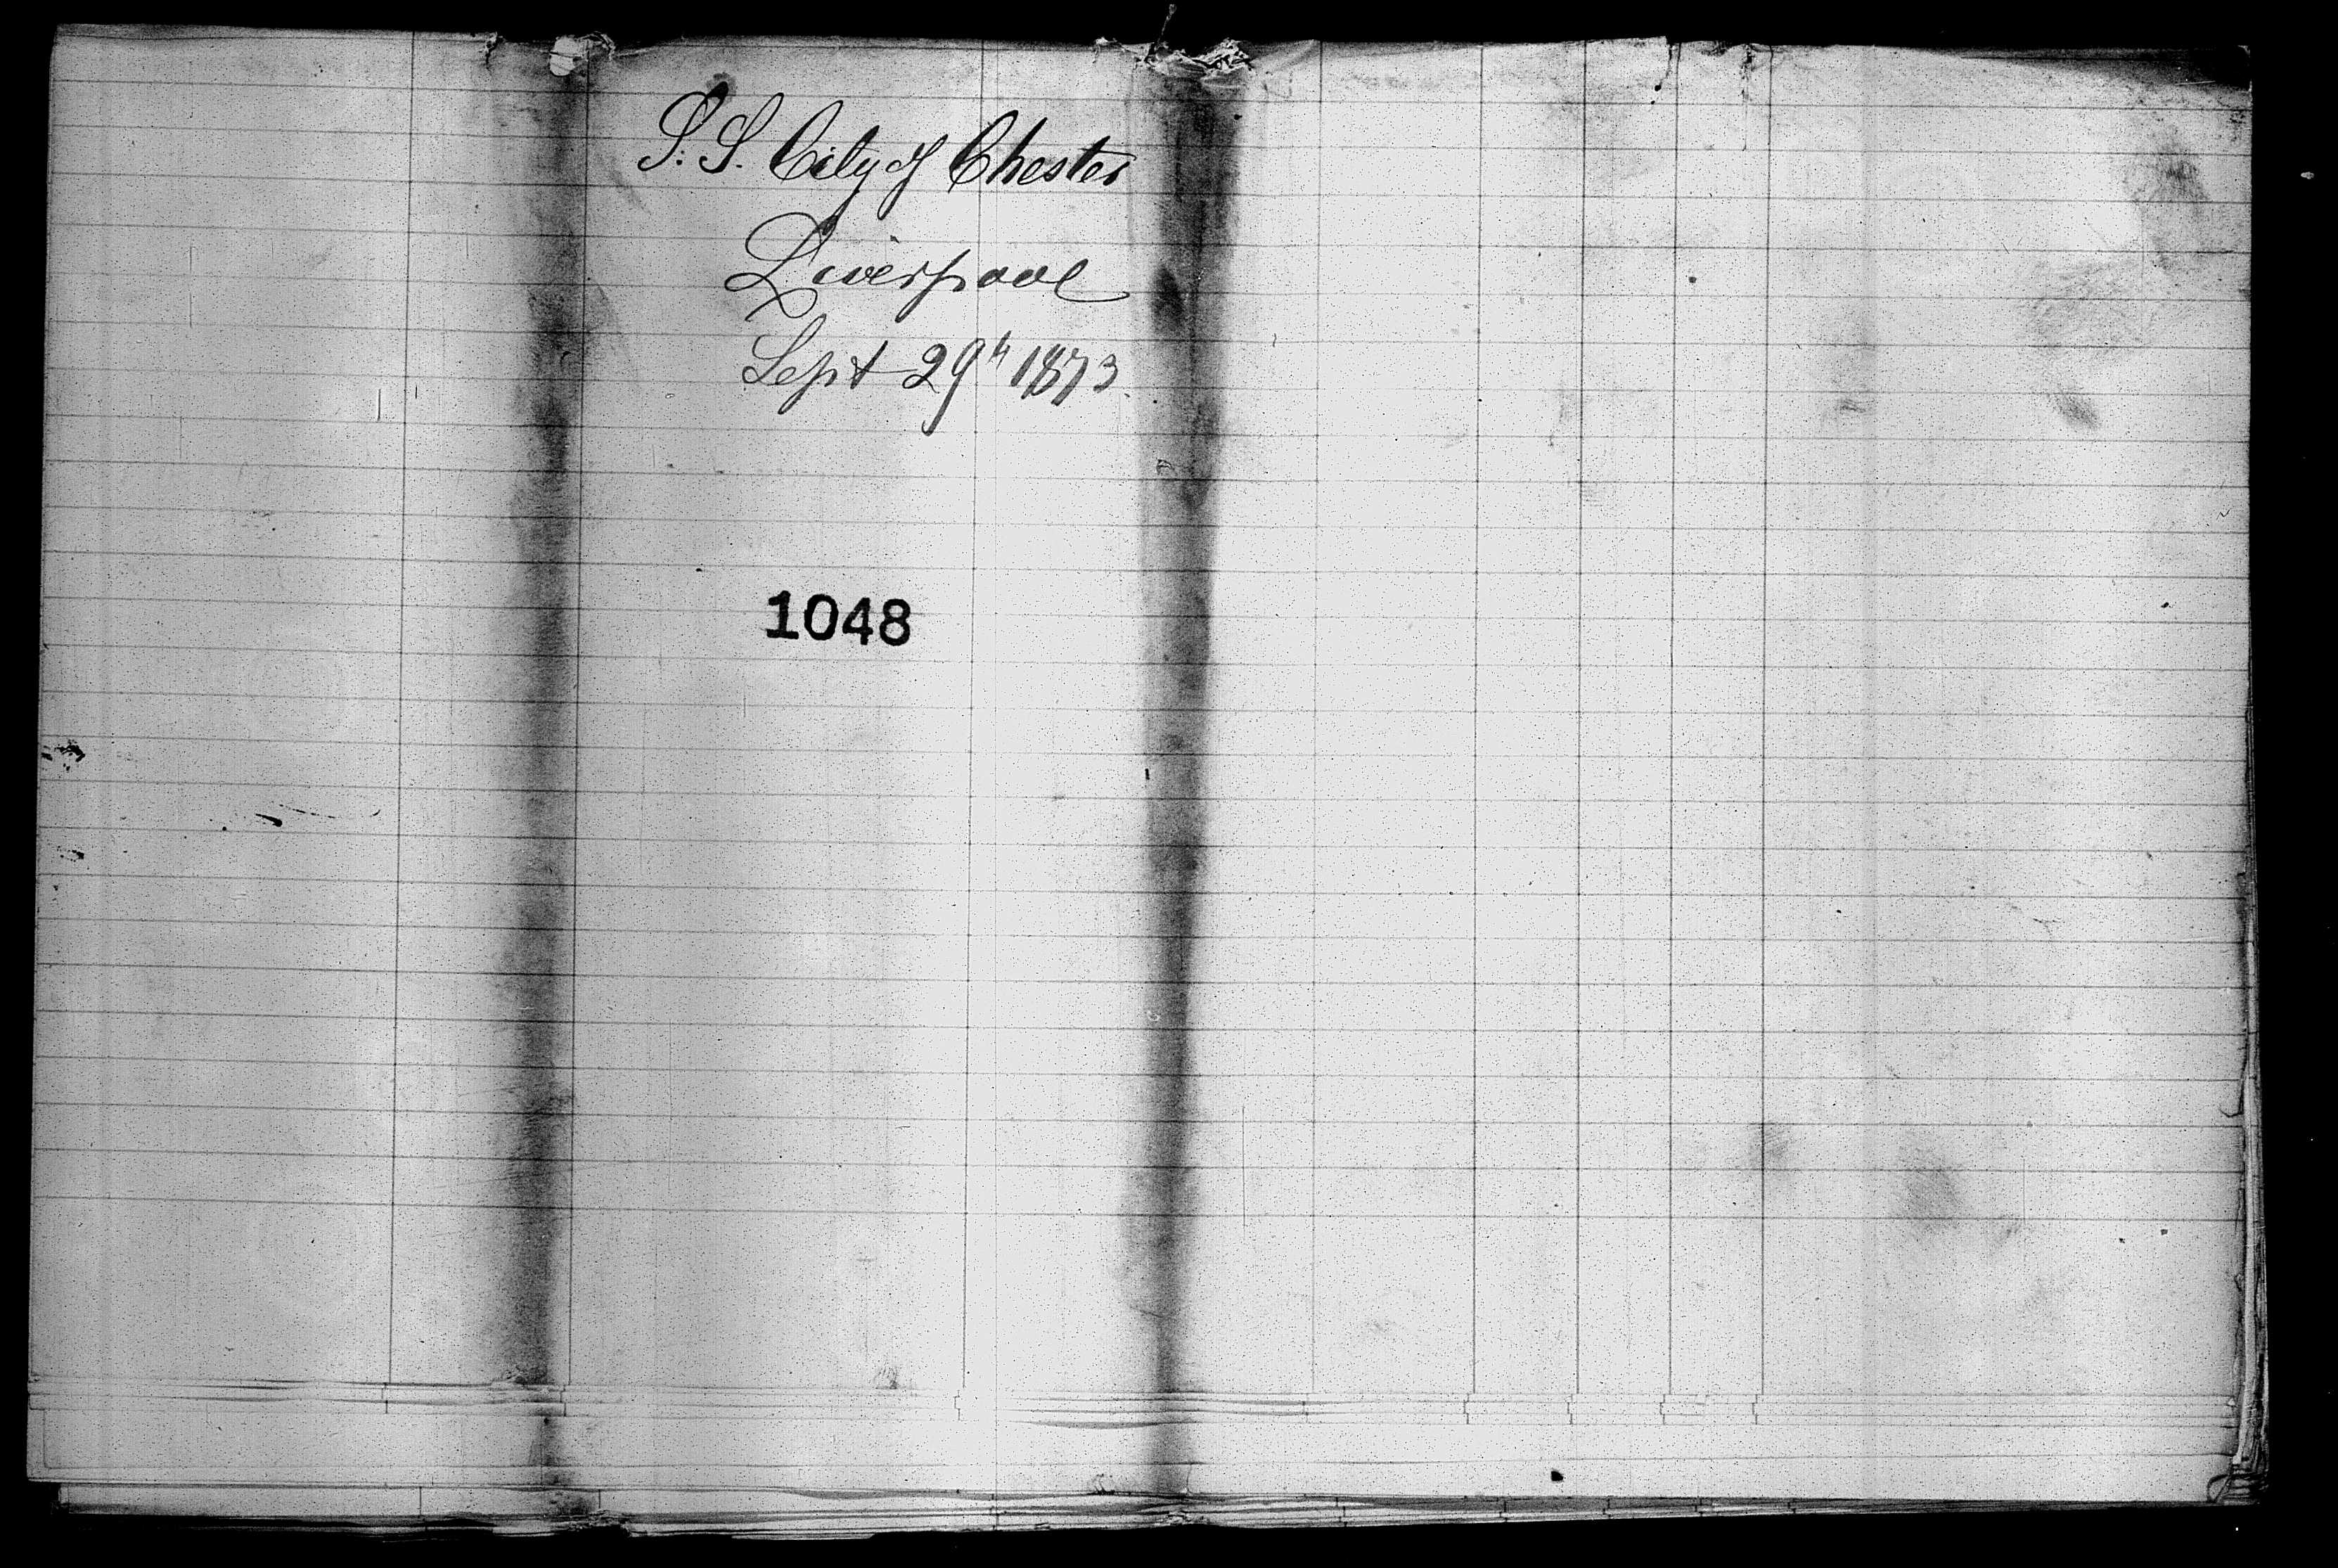 S.S. City of Chester
Liverpool
Sept 29th 1873.
1048